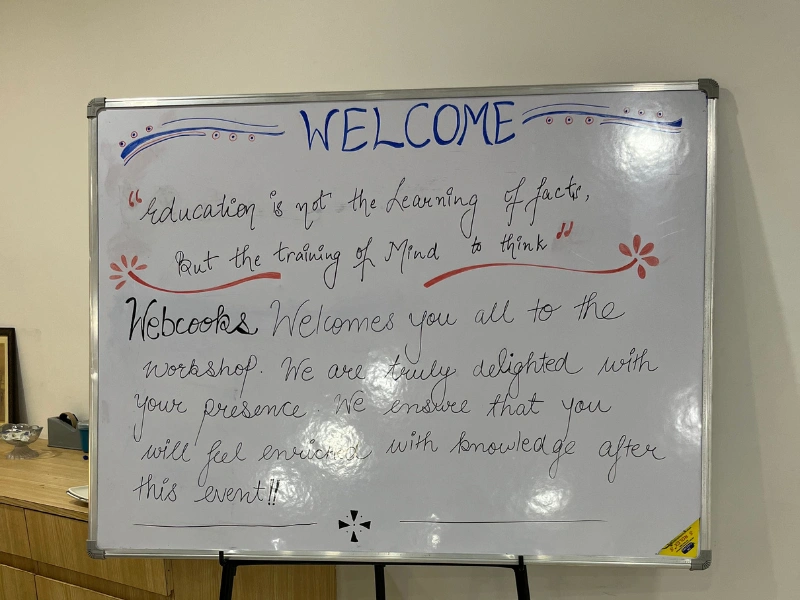 WELCOME
"Education is not the Learning of facts,
But the training of Mind to think"
Webcooks Welcomes you all to the
workshop. We are truly delighted with
your presence. We ensure that you
will feel enriched with knowledge after
this event!!